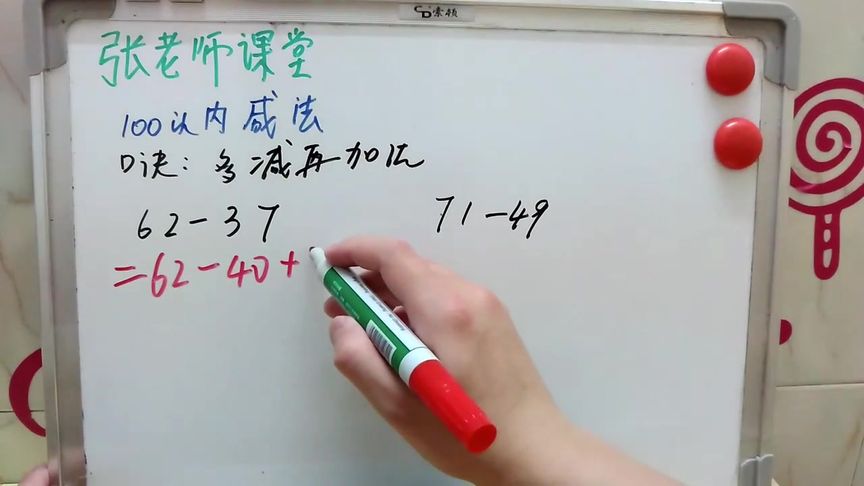 索顿
张老师课堂
100以内减法
口诀：多减再加法
62-37
71-49
=62-40+